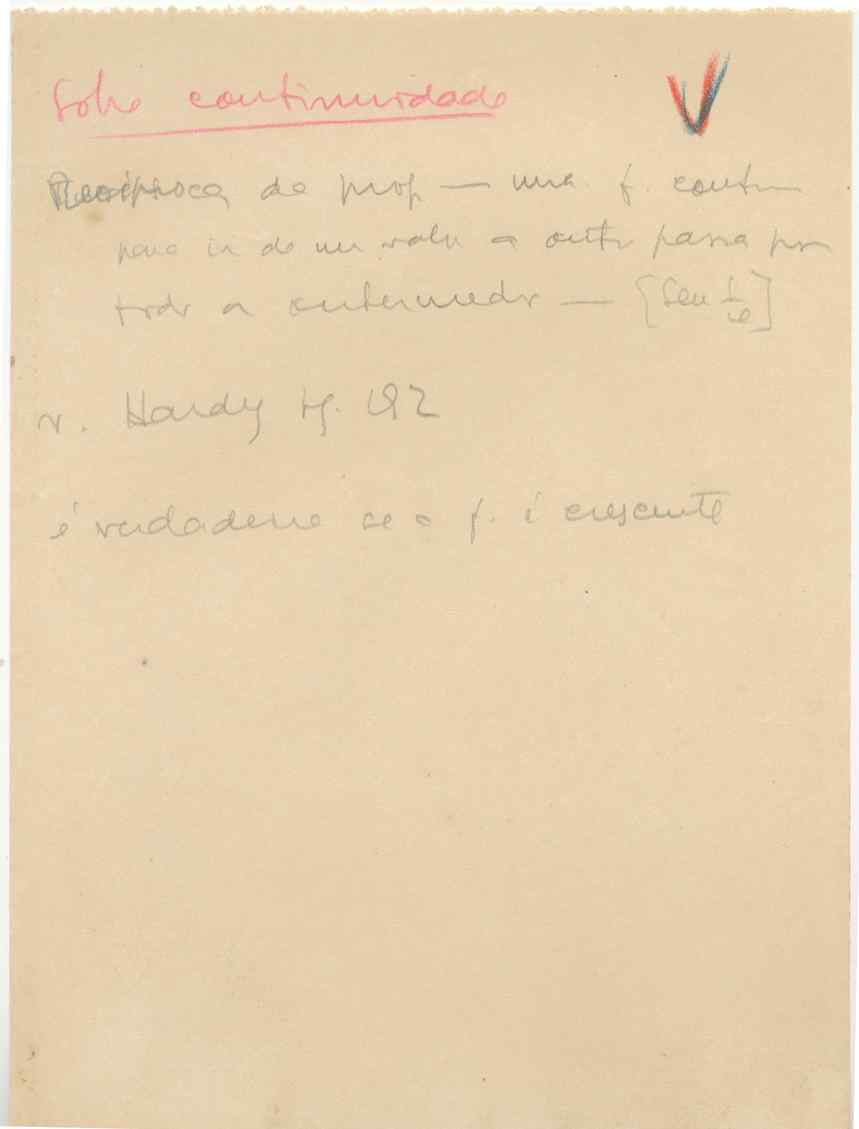 Sobre continuidade
Recíproca da prop — uma f. contin
para ir de um valor a outro passa por
todo o intermedio — [sen 1/x]
v. Hardy pg. 192
é verdadeira se a f. é crescente